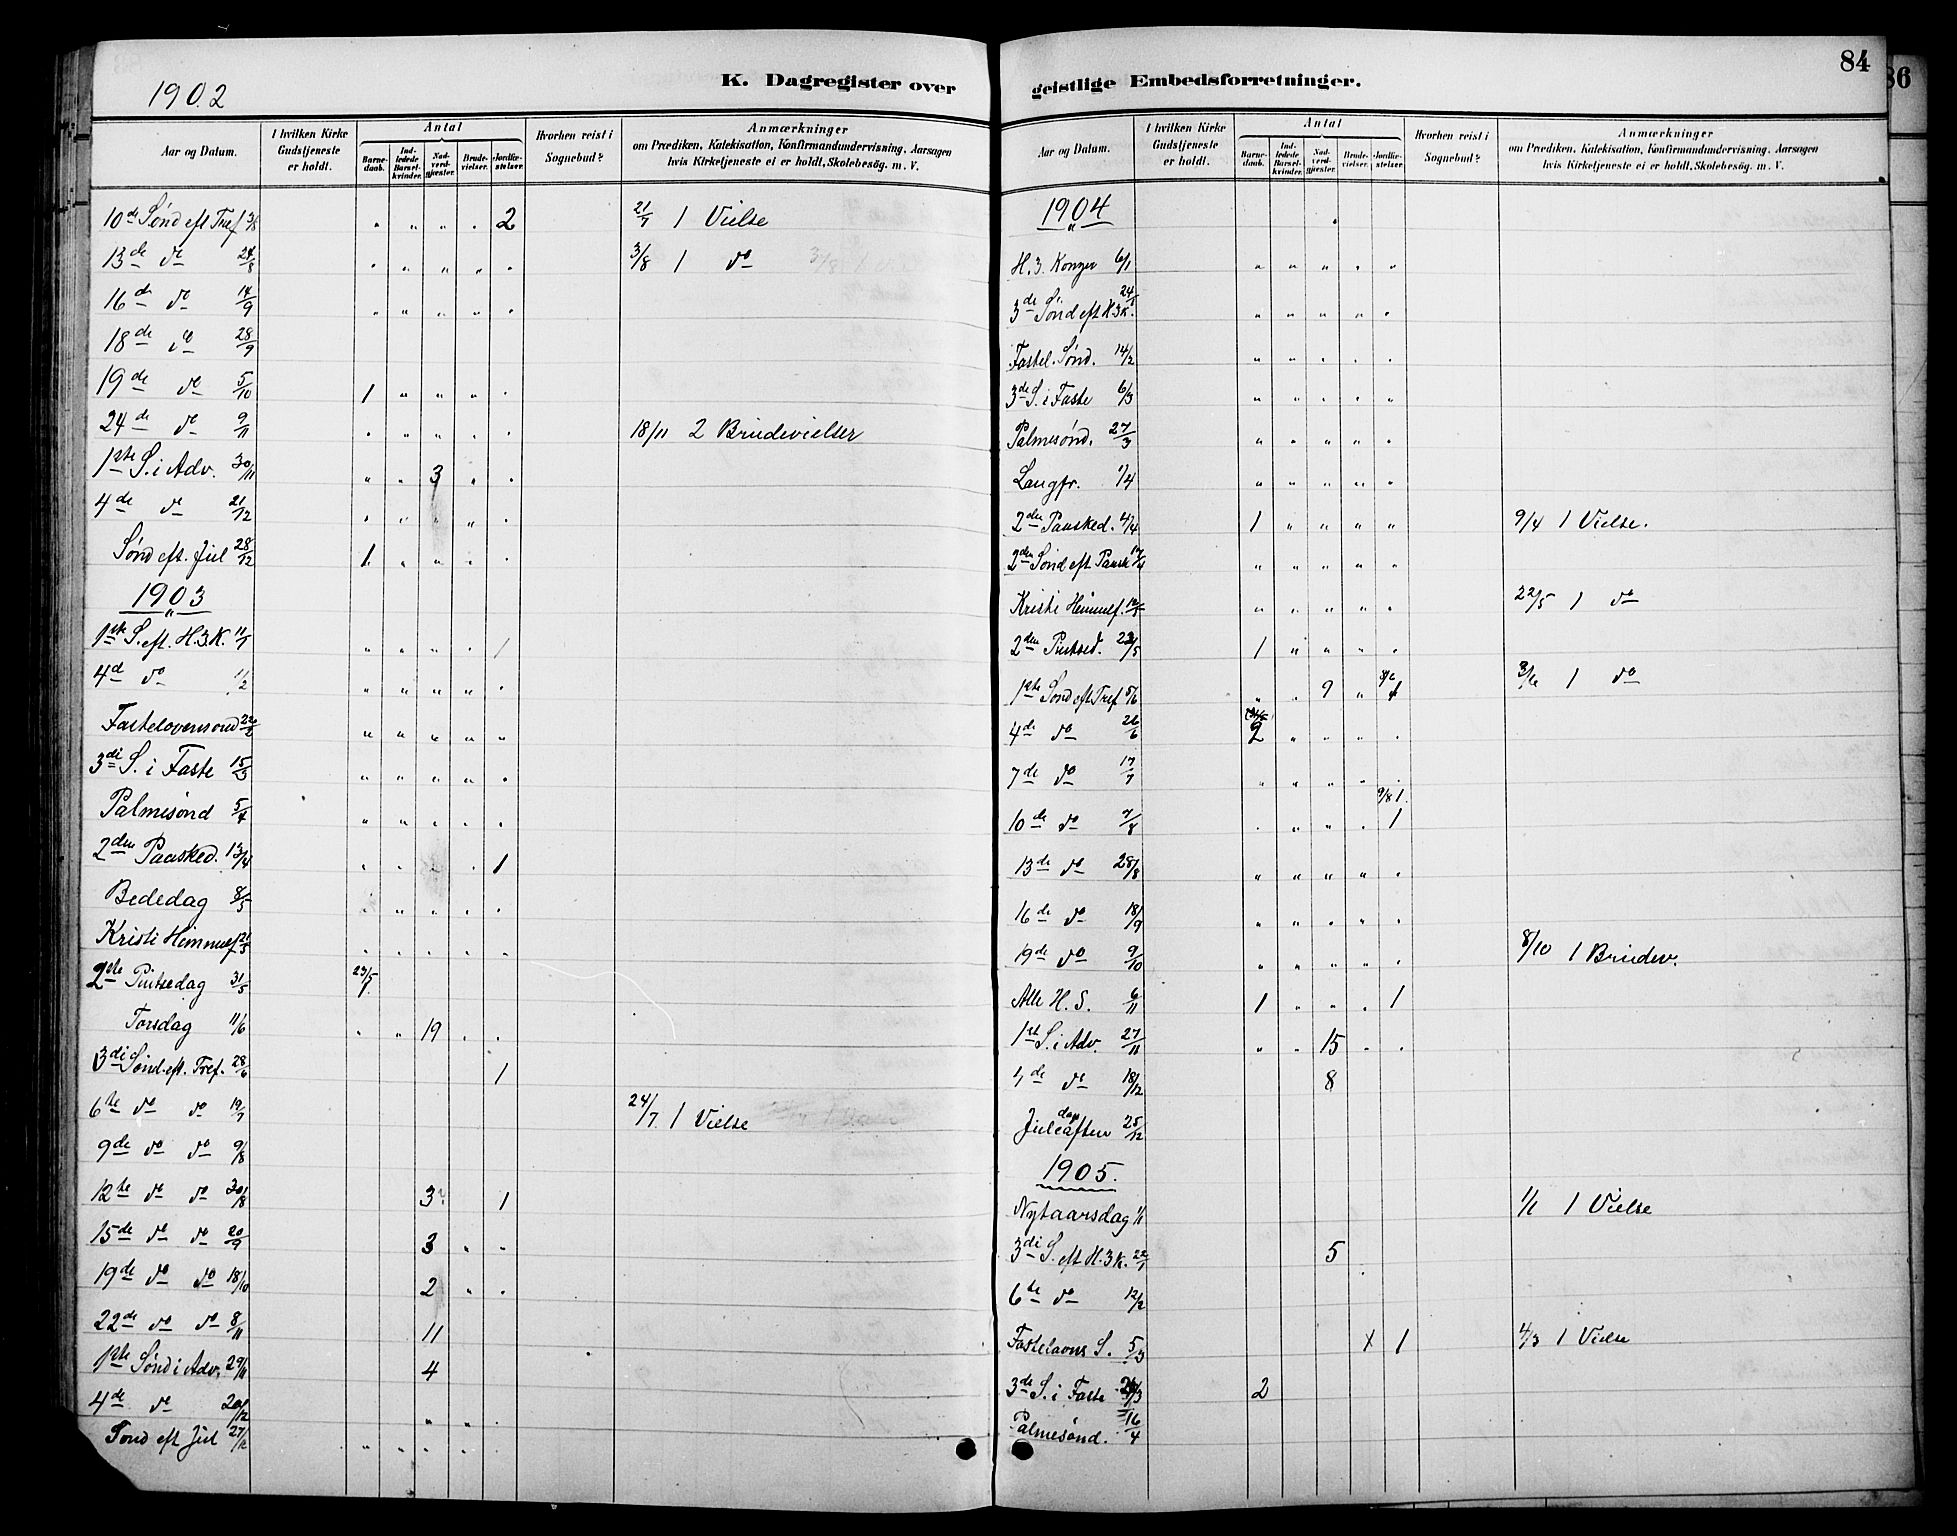 84
86
1902
K. Dagregister over geistlige Embedsforretninger.
Aar og Datum. | I hvilken Kirke Gudstjeneste er holdt. | Antal | Hvorhen reist i Sognebud? | Anmærkninger om Prædiken, Katekisation, Konfirmandundervisning, Aarsagen hvis Kirketjeneste ei er holdt, Skolebesøg. m. V.
Barnedaab. | Indledede Barselkvinder. | Nadverdgjæster. | Brudevielser. | Jordfæstelser.
10de Sønd eft Tref 3/8 " " " " 2 21/7 1 Vielse
13de do 24/8 " " " " " 3/8 1 do
16de do 14/9 " " " " "
18de do 28/9
19de do 5/10 1 " " " "
24de do 9/11 " " " " " 18/11 2 Brudevielser
1ste S. i Adv. 30/11 " " 3 " "
4de do 21/12 " " " " "
Sønd eft. Jul 28/12 1 " " " "
1903
1ste S. eft. H.3.K. 11/1 " " " " 1
4de do 1/2 " " " " "
Fastelovensønd 22/2 " " " " "
3die S. i Faste 15/3 " " " " "
Palmesønd 5/4 " " " " "
2den Paasked. 13/4 " " " " 1
Bededag 8/5 " " " " "
Kristi Himmelf. 21/5 " " " " "
2ste Pintsedag 31/5 23/5 1.
Torsdag 11/6 " " 19 " "
3die Sønd. eft. Tref. 28/6 1
6te do do 19/7 24/7. 1 Vielse
9de do do 9/8
12te do do 30/8 3 1
15de do do 20/9 3 " "
19de do do 18/10 2 " "
22de do do 8/11 11
1ste Sønd i Adv. 29/11 4
4de do 20/12 " "
Sønd eft Jul 27/12 " " " " "
Aar og Datum. | I hvilken Kirke Gudstjeneste er holdt. | Antal | Hvorhen reist i Sognebud? | Anmærkninger om Prædiken, Katekisation, Konfirmandundervisning, Aarsagen hvis Kirketjeneste ei er holdt, Skolebesøg. m. V.
Barnedaab. | Indledede Barselkvinder. | Nadverdgjæster. | Brudevielser. | Jordfæstelser.
1904
H. 3. Konger 6/1 " " " " "
3de Sønd eft H3K. 24/1 " " " " "
Fastel. Sønd. 14/2 " " " " "
3de S. i Faste 6/3 " " " " "
Palmesønd. 27/3 " " " " "
Langfr. 1/4 " " " " "
2den Paasked. 4/4 1 " " " " 9/4 1 Vielse.
2den Sønd eft Paaske 17/4 " " " " "
Kristi Himmelf. 12/5 " " " " " 22/5 1 do
2den Pintsed. 23/5 1 " " " "
1ste Sønd eft Tref 5/6 " " 9 " 1 3/6 1 do
4de do 26/6 2 " " " "
7de do 17/7 " " " " "
9/8 1.
10de do 7/8 " " " " 1
13de do 28/8 " " " " "
16de do 18/9 " " " " "
19de do 9/10 " " " " " 8/10 1 Brudev.
Alle H. S. 6/11 1 " " " 1
1ste S. i Adv. 27/11 " " 15 " "
4de do 18/12 8
Juleaften dag 25/12
1905.
Nytaarsdag 1/1 1/1 1 Vielse
3die S. eft H. 3 K. 22/1 5
6te do 12/2
Fastelavns S. 5/3 x 1 4/3 1 Vielse
3de S. i Faste 26/3 2
Palmesønd. 16/4